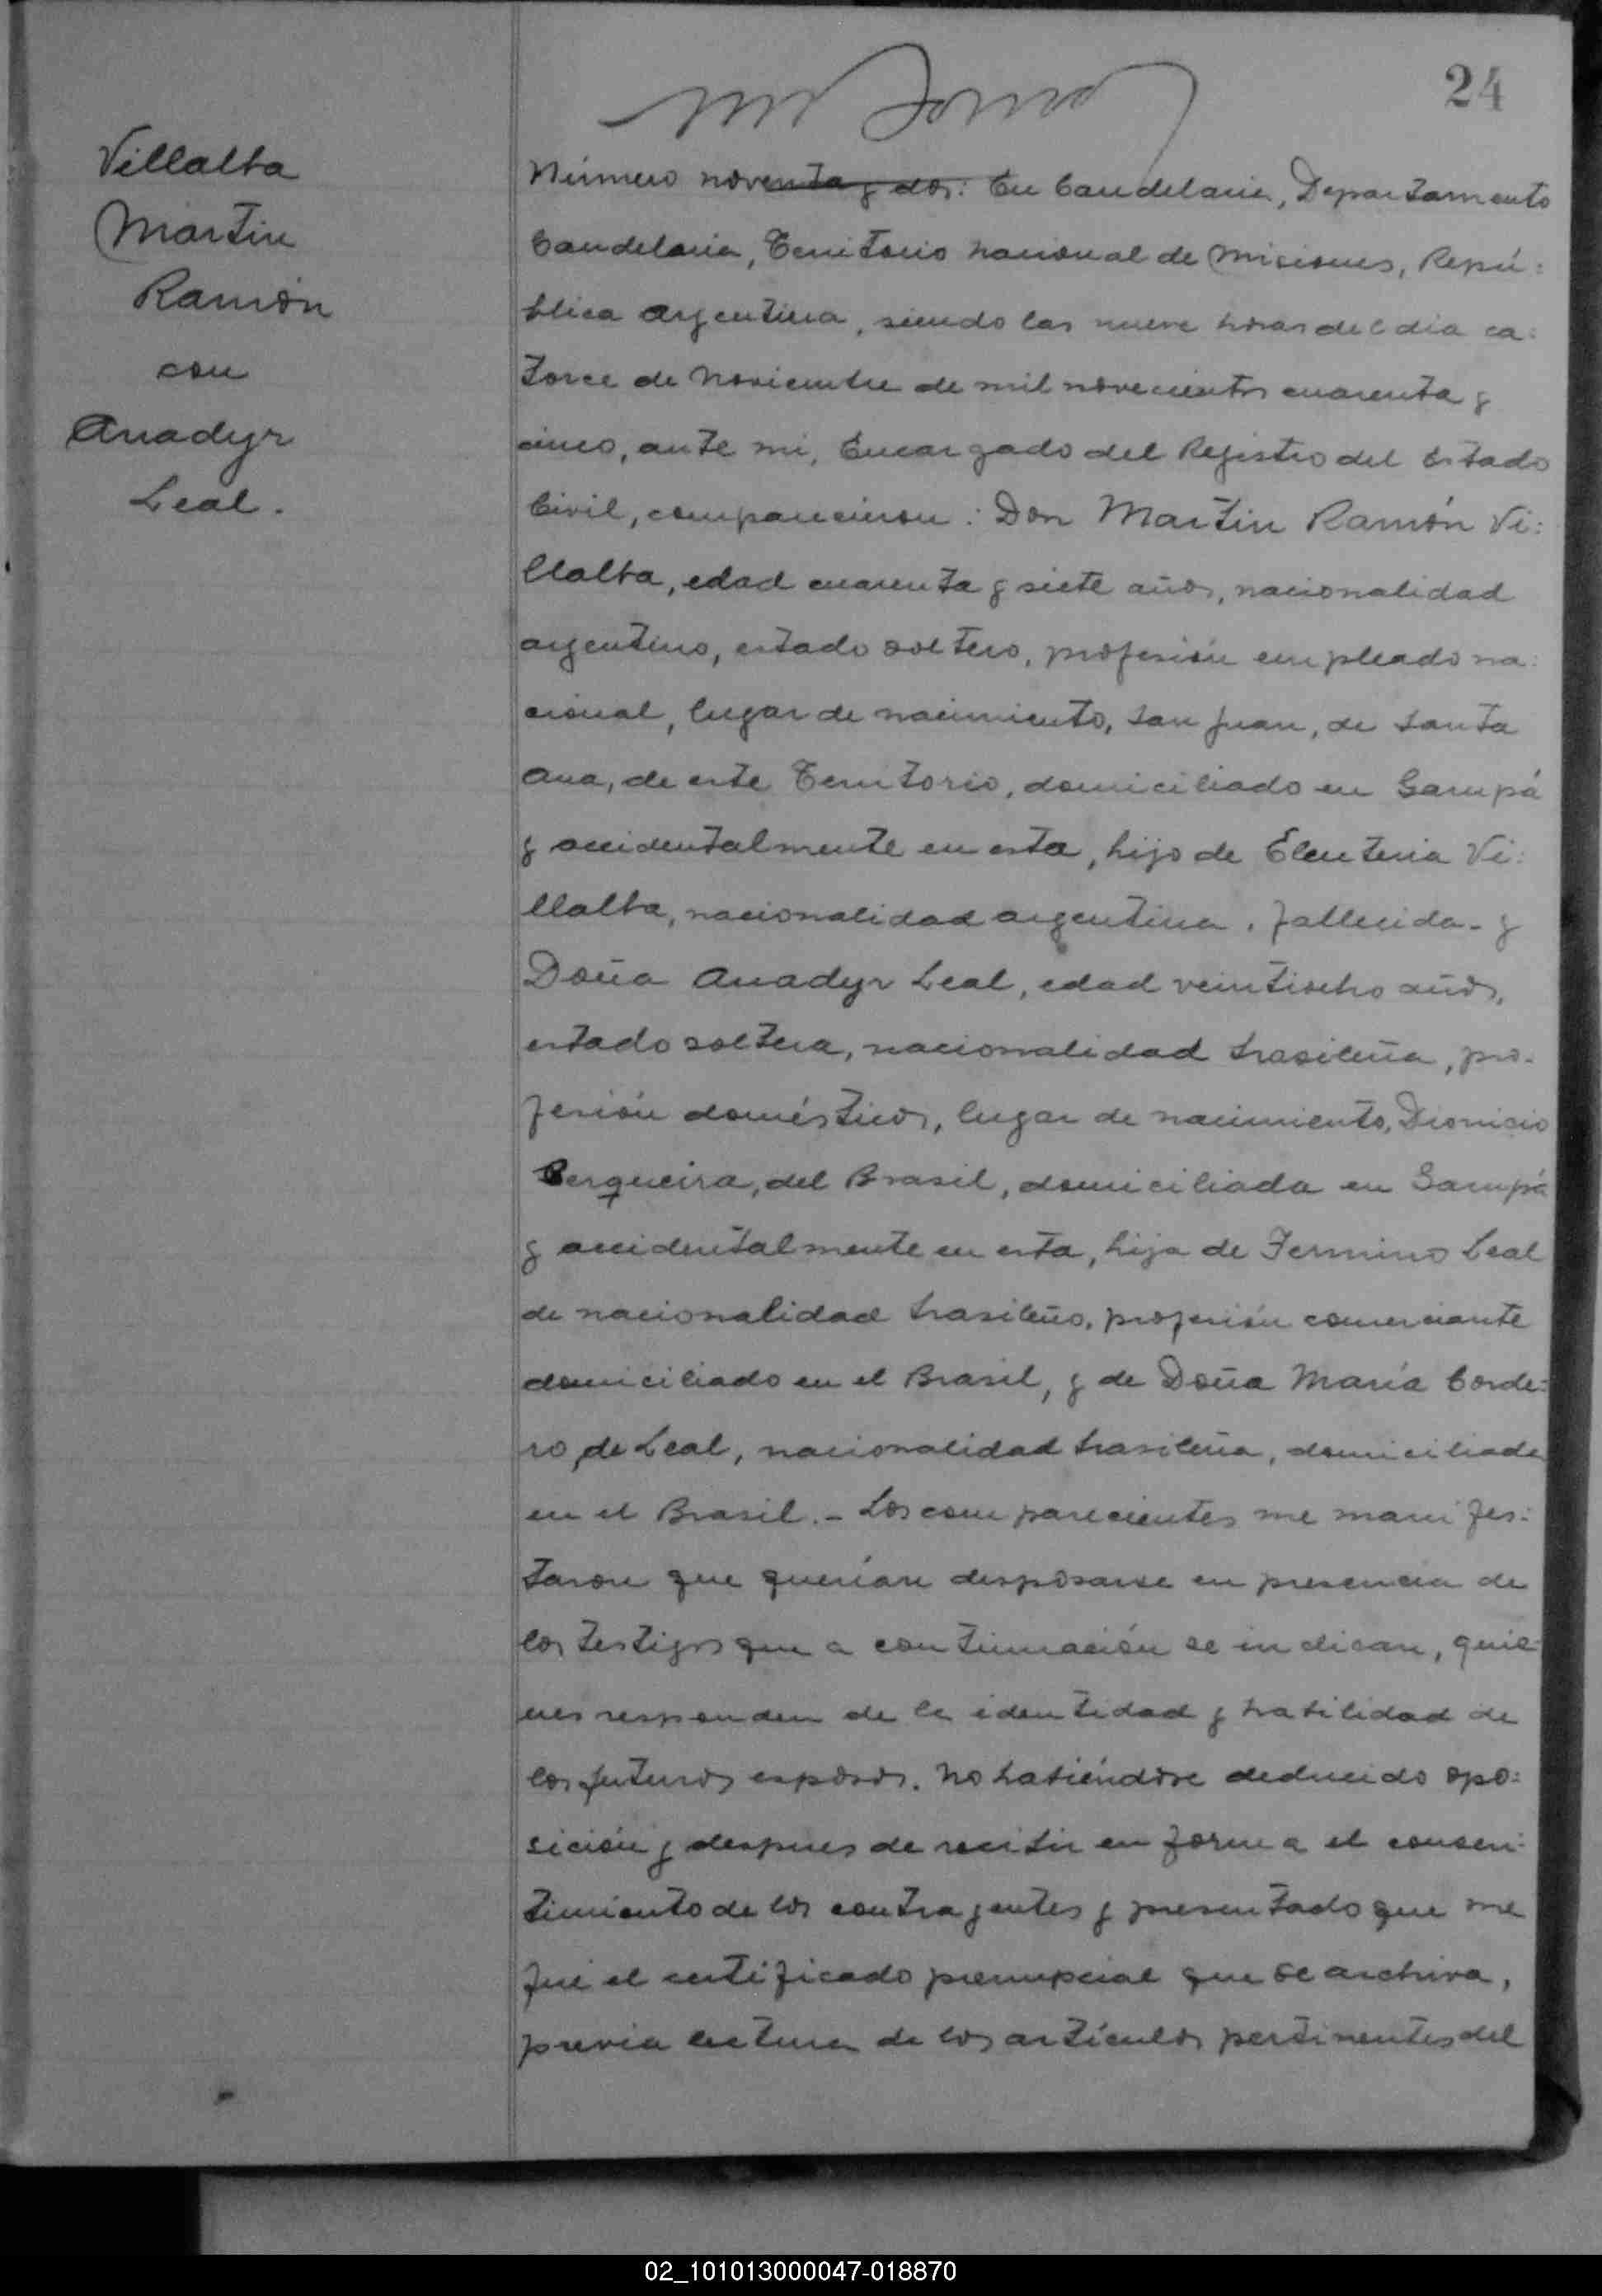 24
Villalba
Martin
Ramón
con
Anadyr
Leal.
Número noventa y dos: En Candelaria, Departamento
Candelaria, Territorio Nacional de Misiones, Repú:
blica Argentina, siendo las nueve horas del dia ca:
torce de Noviembre de mil novecientos cuarenta y
cinco, ante mi, Encargado del Registro del Estado
Civil, comparecieron: Don Martin Ramón Vi:
llalba, edad cuarenta y siete años, nacionalidad
argentino, estado soltero, profesión empleado na:
cional, lugar de nacimiento, San Juan, de Santa
Ana, de este Territorio, domiciliado en Garupá
y accidentalmente en esta, hijo de Eleuteria Vi:
llalba, nacionalidad argentina, fallecida.- y
Doña Anadyr Leal, edad veintiocho años,
estado soltera, nacionalidad brasileña, pro-
fesión domésticos, lugar de nacimiento, Dionicio
Cerqueira, del Brasil, domiciliada en Garupá
y accidentalmente en esta, hija de Fermino Leal
de nacionalidad brasileño, profesión comerciante
domiciliado en el Brasil, y de Doña María Corde:
ro de Leal, nacionalidad brasileña, domiciliada
en el Brasil.- Los comparecientes me manifes:
taron que querían desposarse en presencia de
los testigos que a continuación se indican, quie:
nes responden de la identidad y habilidad de
los futuros esposos. No habiéndose deducido opo:
sición y despues de recibir en forma el consen:
timiento de los contrayentes y presentado que me
fué el certificado prenupcial que se archiva,
previa lectura de los artículos pertinentes del
02_101013000047-018870